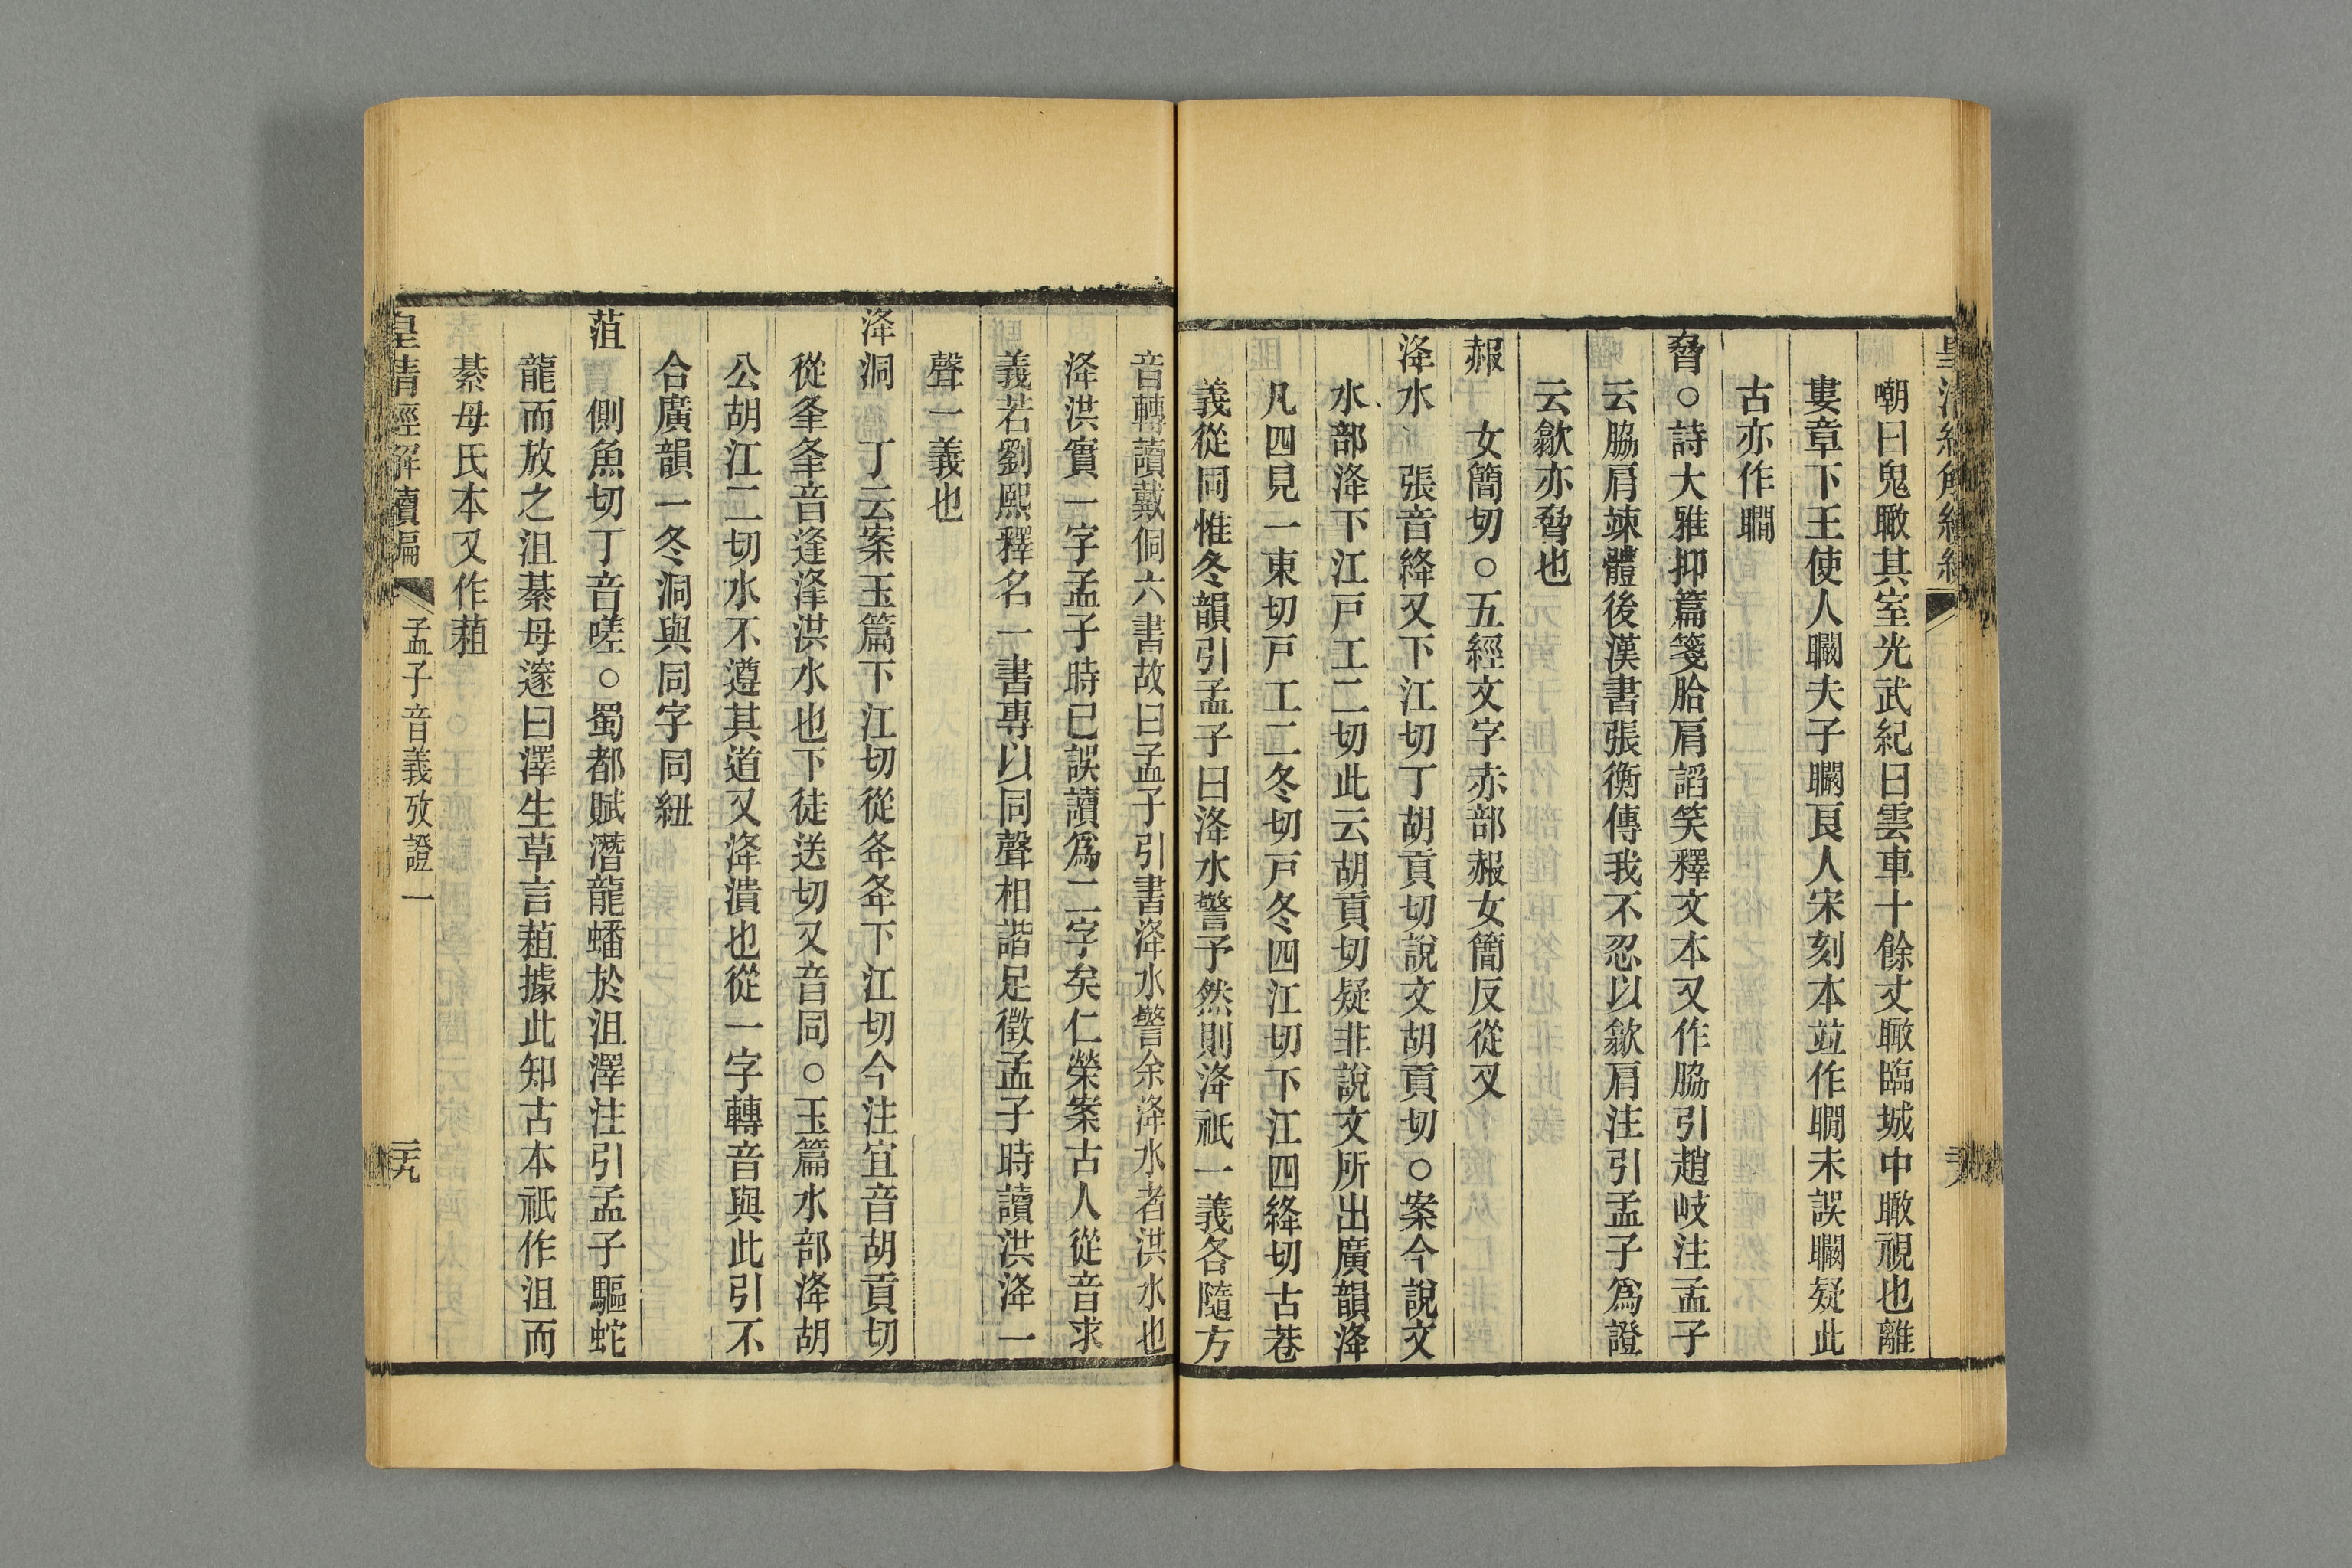 嘲曰鬼瞰其室光武紀曰雲車十餘丈瞰臨城中瞰視也離
婁章下王使人瞷夫子瞷良人宋刻本竝作瞷未誤瞷疑此
古亦作瞷
脅○詩大雅抑篇箋胎肩謟笑釋文本又作脇引趙岐注孟子
云脇肩竦體後漢書張衡傳我不忍以歙肩注引孟子爲證
云歙亦脅也
赧　女簡切○五經文字赤部赧女簡反從㕞
洚水　張音絳又下江切丁胡貢切說文胡貢切○案今說文
水部洚下江戸工二切此云胡貢切疑非說文所出廣韻洚
凡四見一東切戸工二冬切戸冬四江切下江四絳切古巷
義從同惟冬韻引孟子曰洚水警予然則洚祇一義各隨方
音轉讀戴侗六書故曰孟子引書洚水警余洚水者洪水也
洚洪實一字孟子時已誤讀爲二字矣仁榮案古人從音求
義若劉熙釋名一書專以同聲相諧足徵孟子時讀洪洚一
聲一義也
洚洞　丁云案玉篇下江切從夅夅下江切今注宜音胡貢切
從夆夆音逢浲洪水也下徒送切又音同○玉篇水部洚胡
公胡江二切水不遵其道又洚潰也從一字轉音與此引不
合廣韻一冬洞與同字同紐
菹　側魚切丁音嗟○蜀都賦潛龍蟠於沮澤注引孟子驅蛇
龍而放之沮綦毋邃曰澤生草言葅據此知古本祇作沮而
綦毋氏本又作葅
皇清經解續編　孟子音義攷證一　二十九